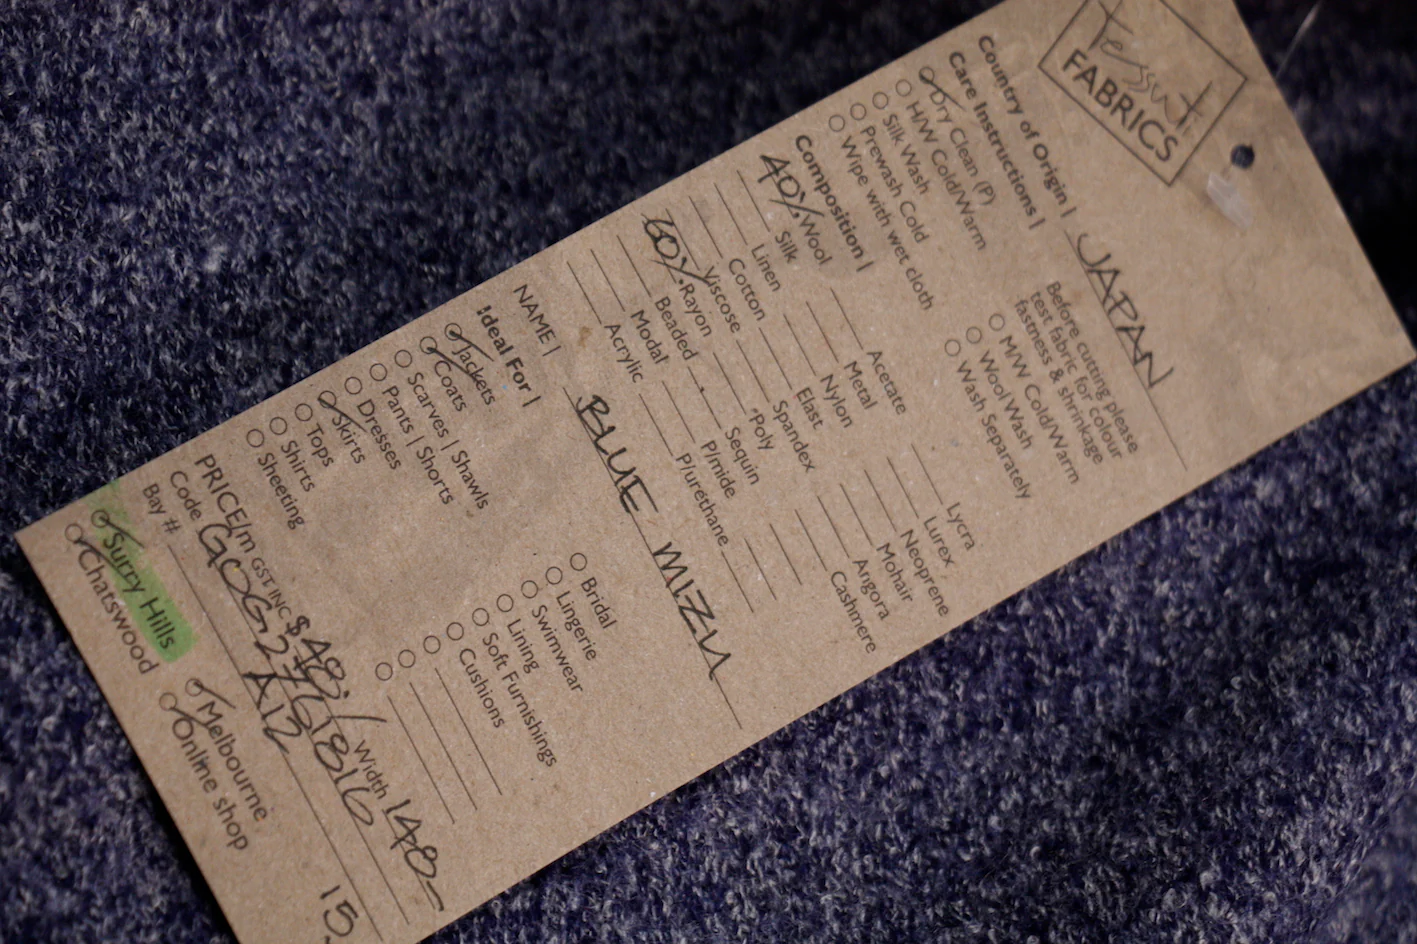 tessuti
FABRICS
Country of Origin | JAPAN
Care Instructions |
Dry Clean (P)
H/W Cold/Warm
Silk Wash
Prewash Cold
Wipe with wet cloth
Before cutting please
test fabric for colour
fastness & shrinkage
M/W Cold/Warm
Wool Wash
Wash Separately
Composition |
40% Wool
Silk
Linen
Cotton
Viscose
60% Rayon
Beaded
Modal
Acrylic
Acetate
Metal
Nylon
Elast
Spandex
Poly
Sequin
P/mide
P/urethane
Lycra
Lurex
Neoprene
Mohair
Angora
Cashmere
NAME | BLUE MIZU
Ideal For |
Jackets
Coats
Scarves | Shawls
Pants | Shorts
Dresses
Skirts
Tops
Shirts
Sheeting
Bridal
Lingerie
Swimwear
Lining
Soft Furnishings
Cushions
PRICE/m GST INC $48./ Width 148-
Code
Bay # A12
Surry Hills
Chatswood
Melbourne
Online shop
15